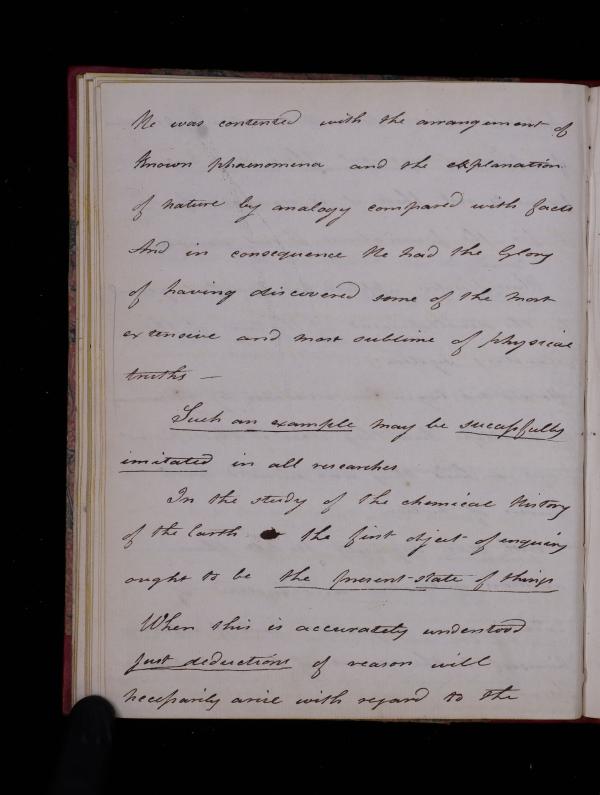 He was contented with the arrangement of
known phaenomena and the explanation
of nature by analogy compared with facts
And in consequence He had the Glory
of having discovered some of the most
extensive and most sublime of physical
truths —
Such an example may be sucessfully
imitated in all researches
In the study of the chemical History
of the Earth the first object of enquiry
ought to be the present state of things
When this is accurately understood
just deductions of reason will
necessarily arise with regard to the